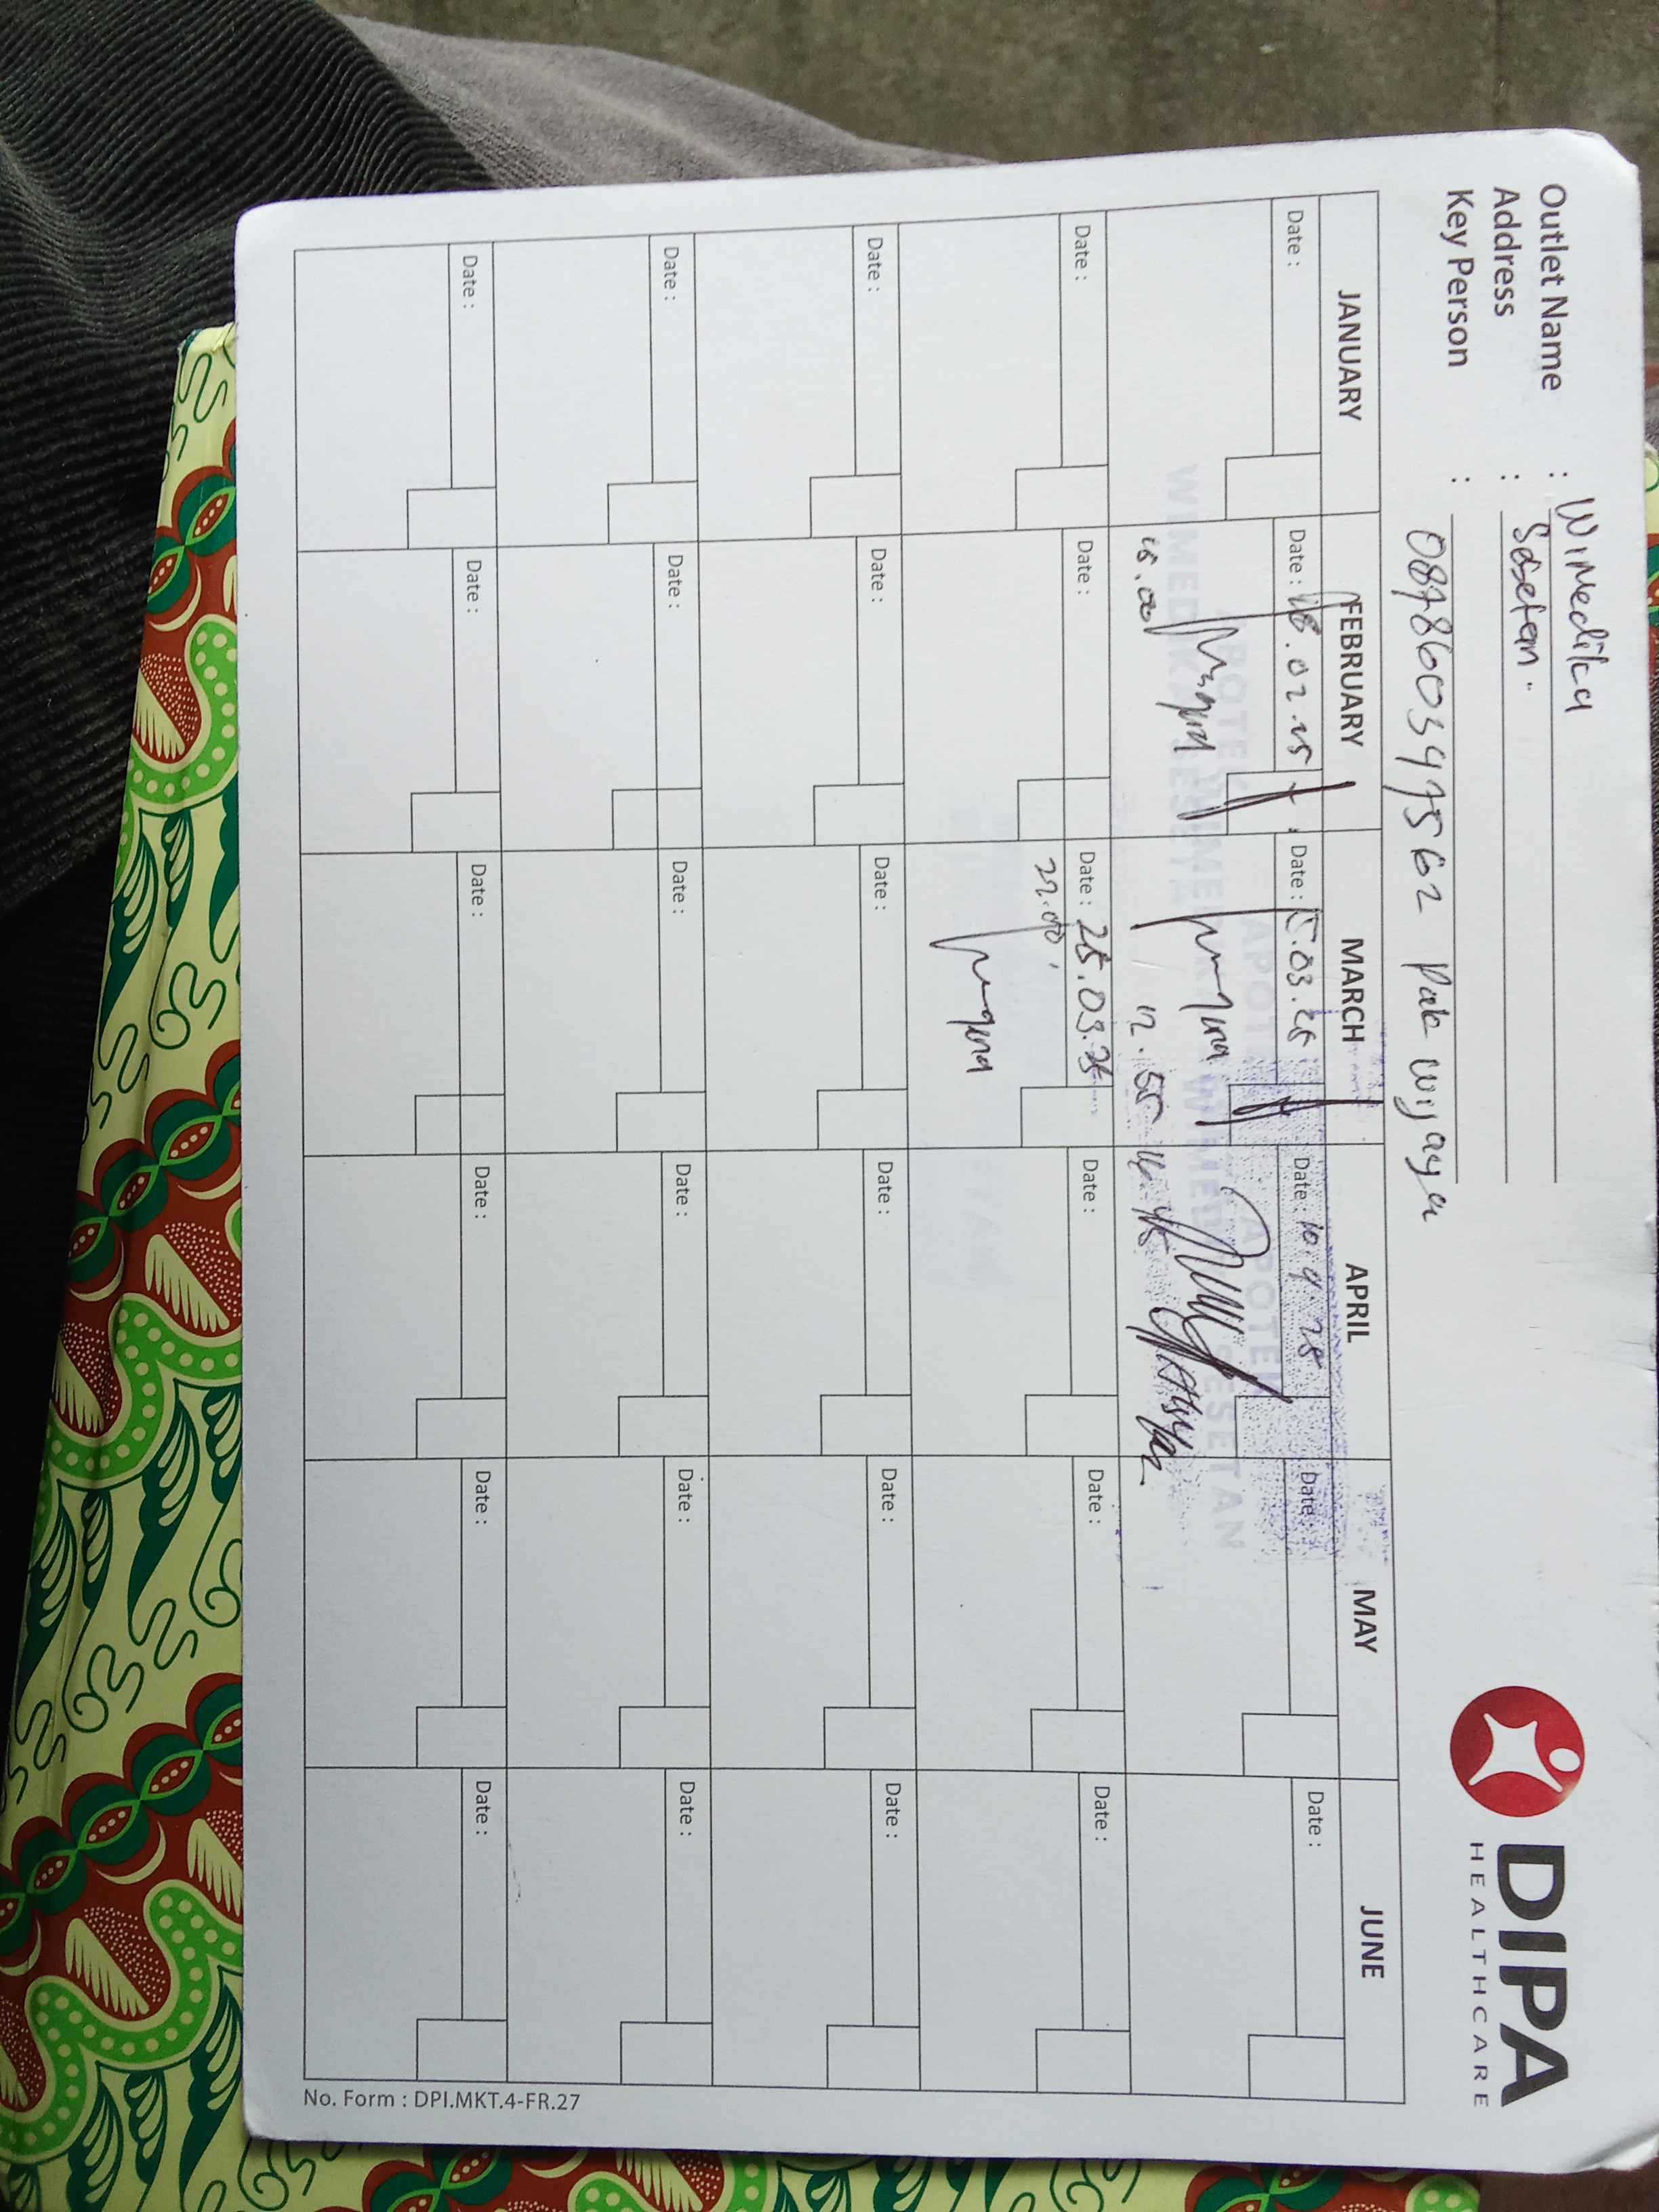 Outlet Name : Wimedika
Address : Sesetan.
Key Person :
Pak Wijaya
DIPA
HEALTHCARE
JANUARY FEBRUARY MARCH APRIL MAY JUNE
Date : Date : 18.02.25 Date : 15.03.25 Date : 10.4.25 Date : Date :
APOTEK
WIMEDIKA SESETAN
15.00 12.55
Date : Date : Date : 25.03.25 Date : Date : Date :
22.00
Date : Date : Date : Date : Date : Date :
Date : Date : Date : Date : Date : Date :
Date : Date : Date : Date : Date : Date :
No. Form : DPI.MKT.4-FR.27